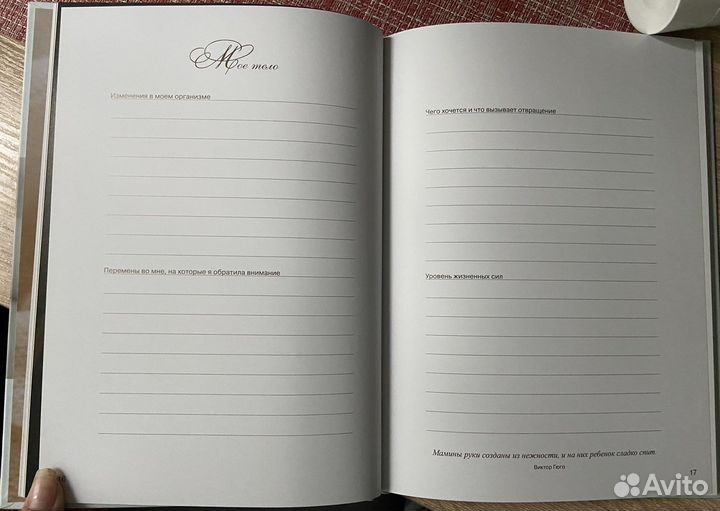 Мое тело
Изменения в моем организме
Перемены во мне, на которые я обратила внимание
16
Чего хочется и что вызывает отвращение
Уровень жизненных сил
Мамины руки созданы из нежности, и на них ребенок сладко спит.
Виктор Гюго
17
Avito